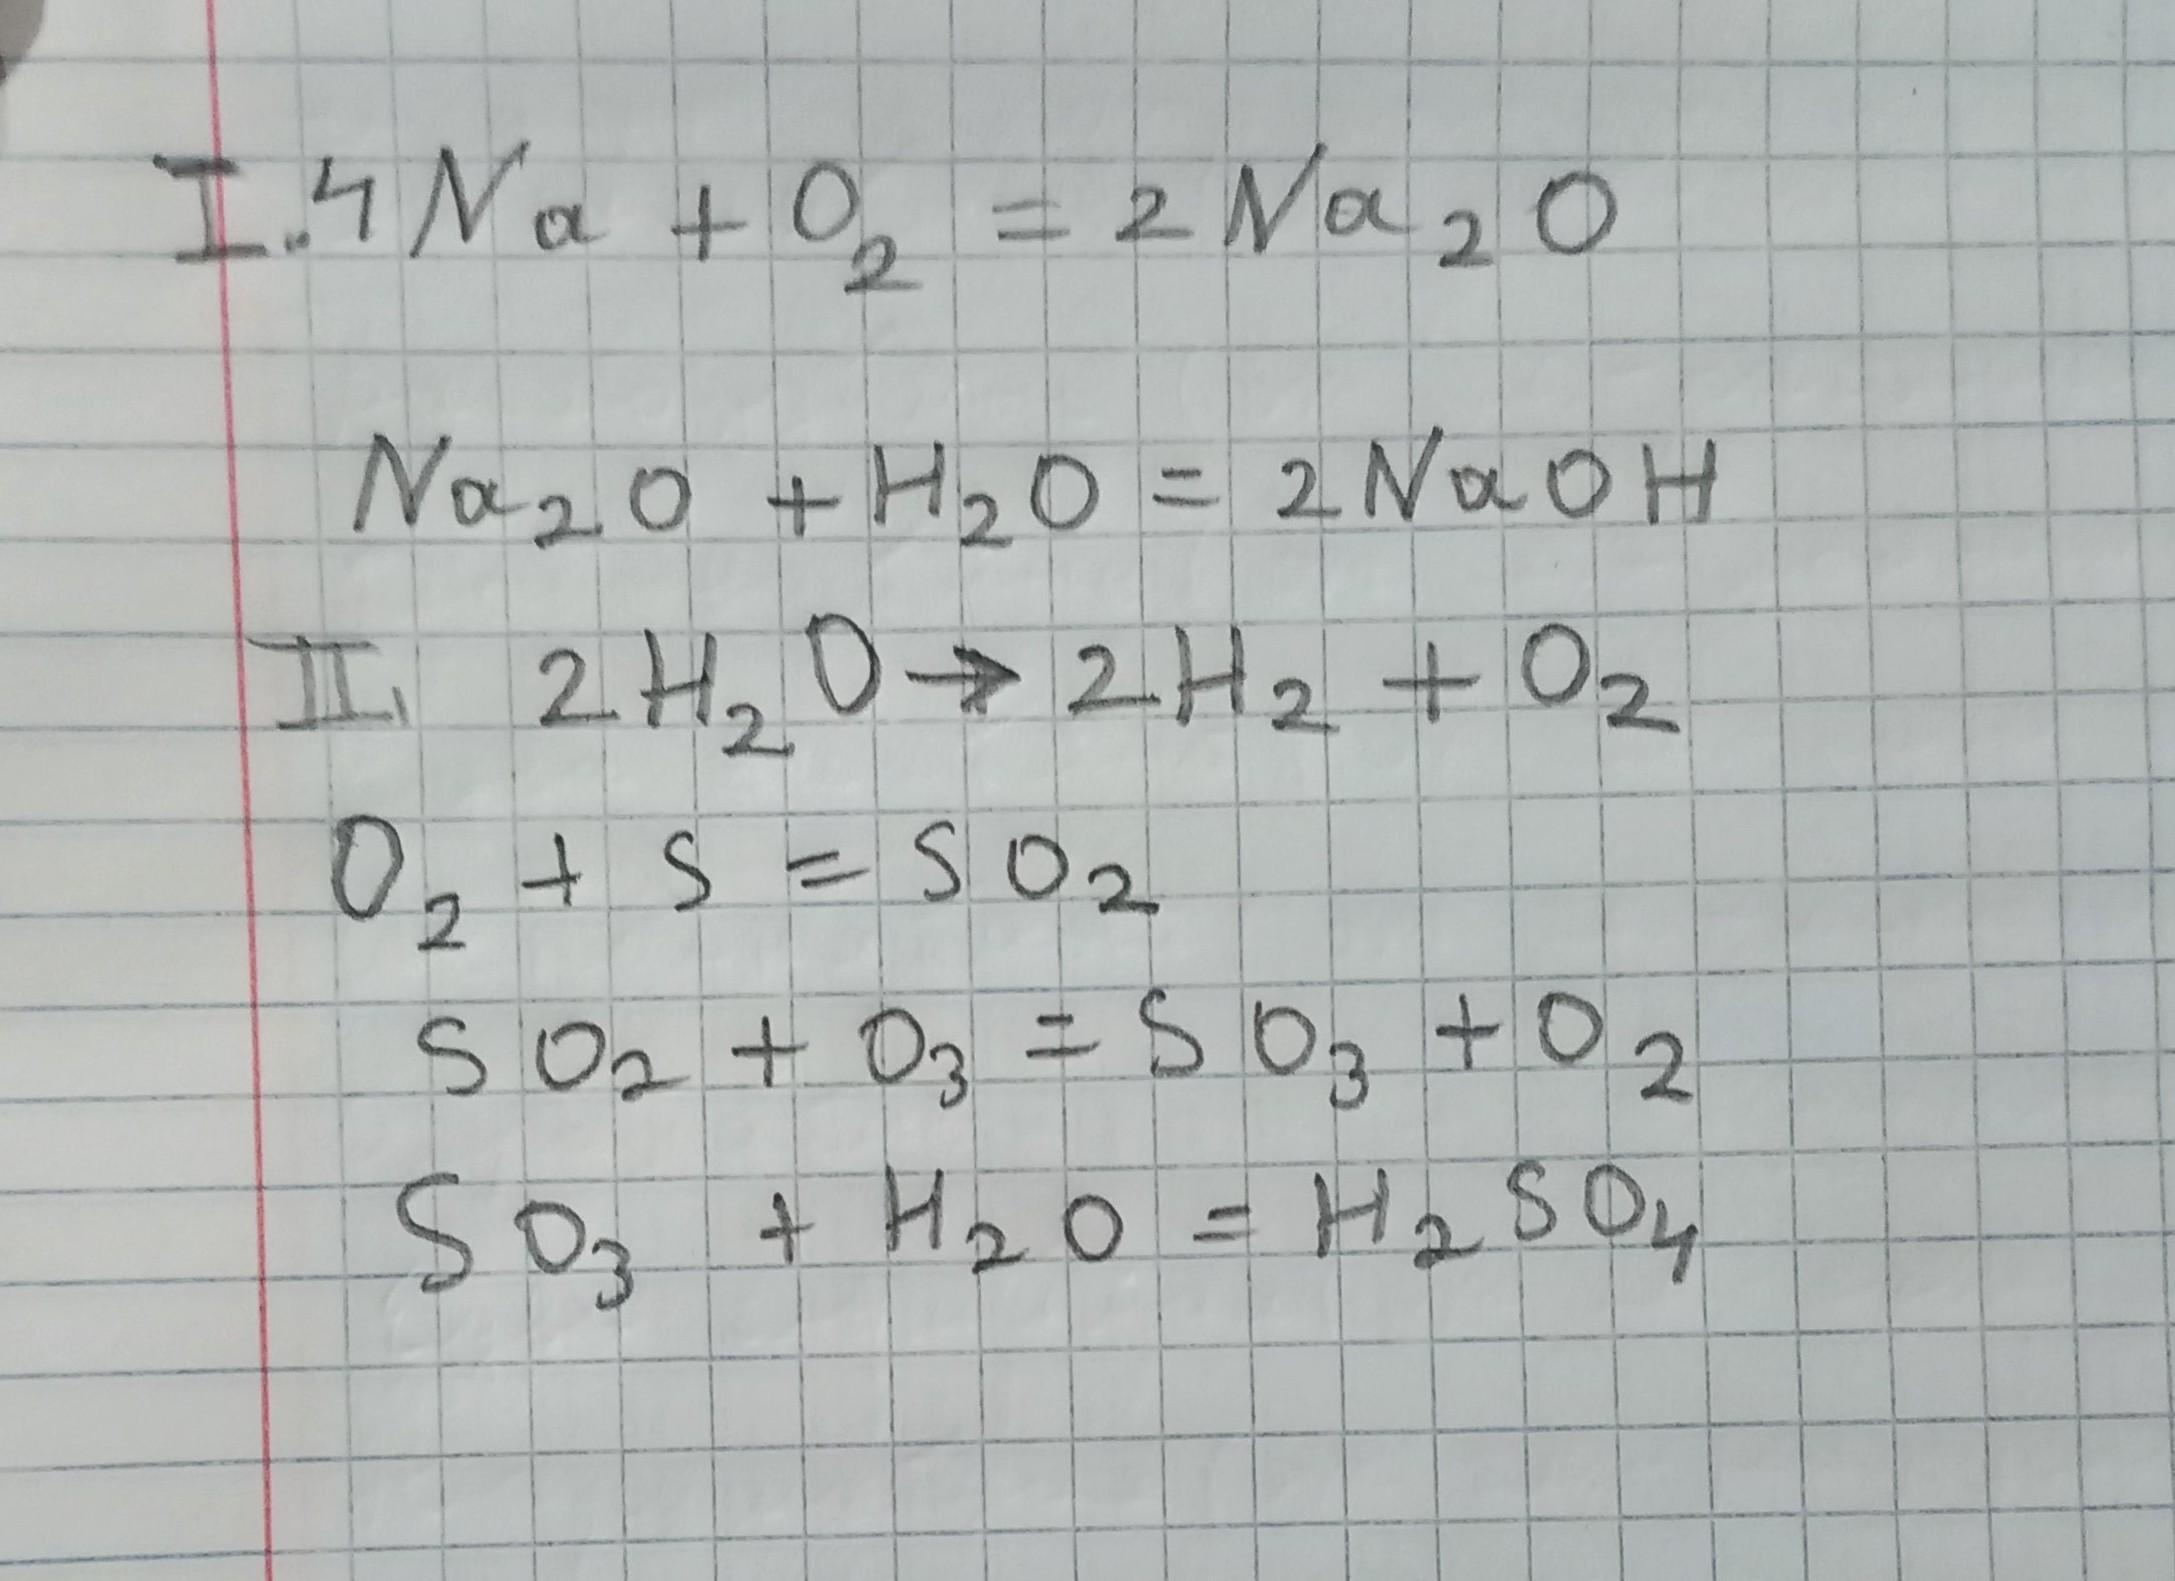 I. 4Na + O₂ = 2Na₂O
Na₂O + H₂O = 2NaOH
II. 2H₂O → 2H₂ + O₂
O₂ + S = SO₂
SO₂ + O₃ = SO₃ + O₂
SO₃ + H₂O = H₂SO₄